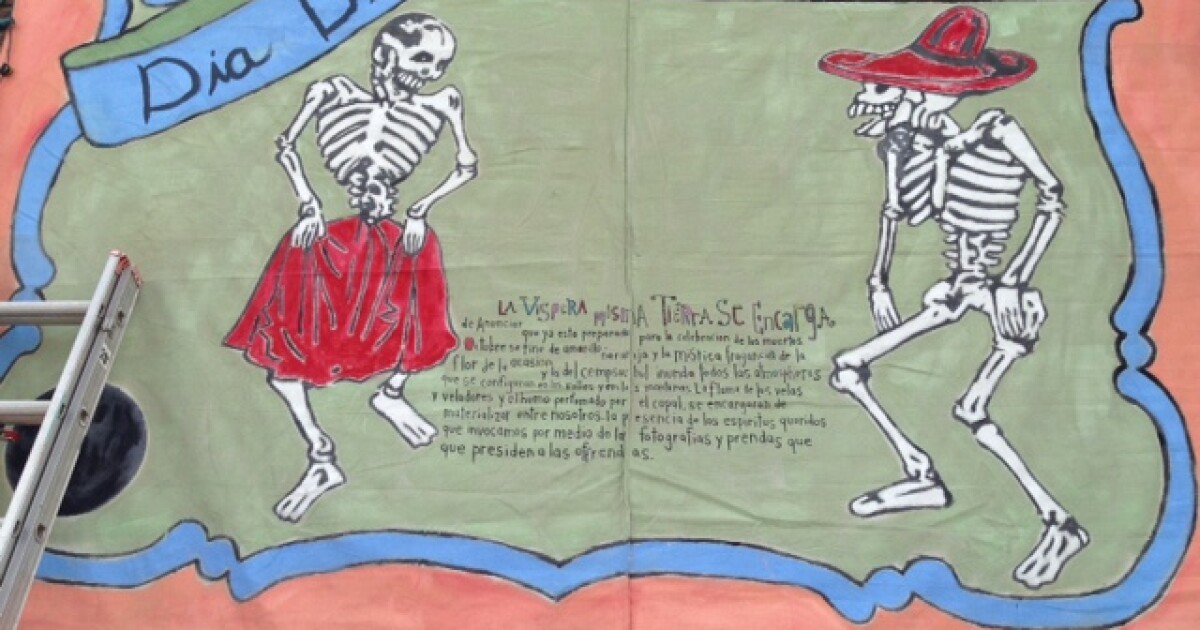 Dia D
LA VISPERA MISMA TIERRA SE ENCARGA
de Anunciar que ya esta preparada para la celebracion de los muertos
Octubre se tiñe de amarillo naranja y la mistica fragancia de la
flor de la ocasion y la del cempasuchil inunda todas las atmosferas
que se configuran en las calles y en las
La flama de las velas
y veladores y el humo perfumado por el copal, se encargaran de
materializar entre nosotros la presencia de los espiritus queridos
que invocamos por medio de la fotografias y prendas que
que presiden a las ofrendas.